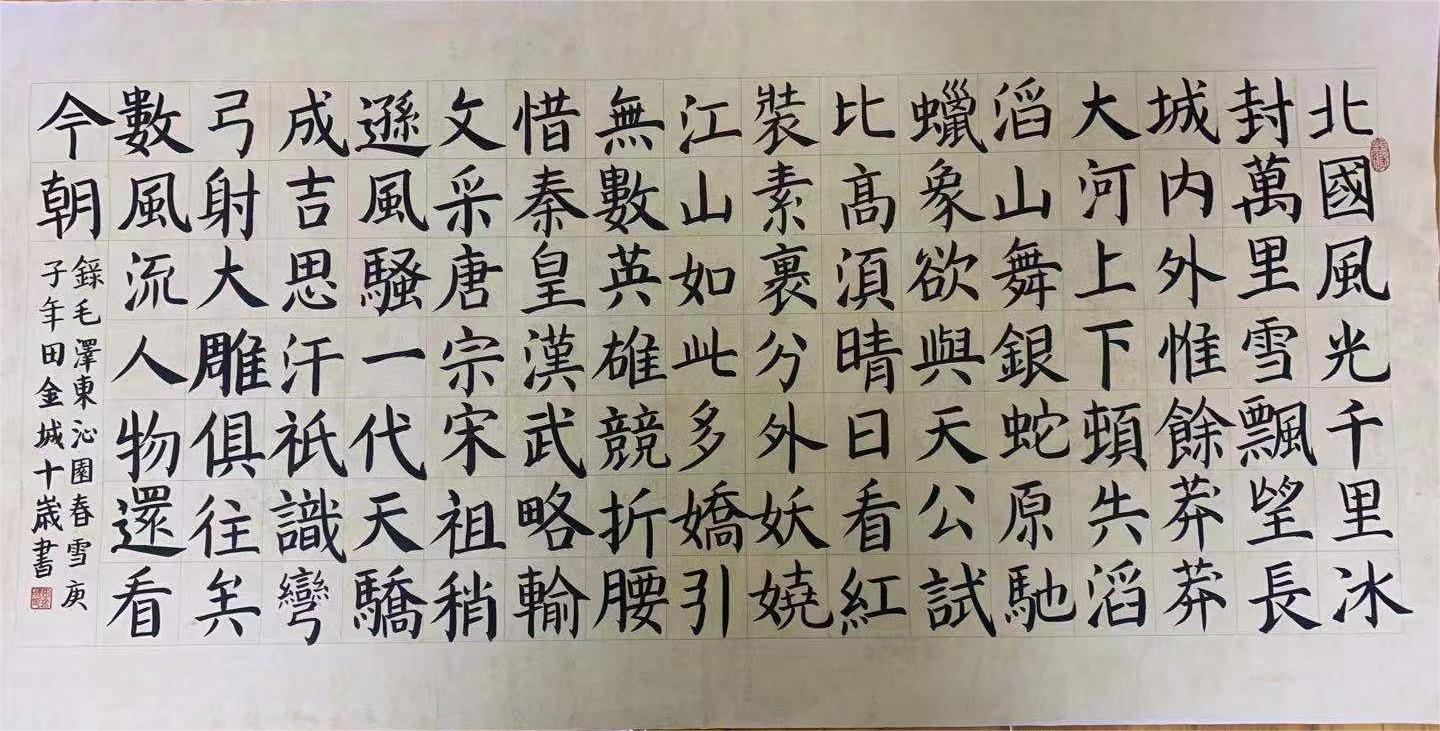 北國風光千里冰
封萬里雪飄望長
城内外惟餘莽莽
大河上下頓失滔
滔山舞銀蛇原馳
蠟象欲與天公試
比髙湏晴日看紅
裝素裹分外妖嬈
江山如此多嬌引
無數英雄競折腰
惜秦皇漢武略輸
文采唐宗宋祖稍
遜風騷一代天驕
成吉思汗祇識彎
弓射大雕俱往矣
數風流人物還看
今朝
錄毛澤東沁園春雪庚
子年田金城十歲書